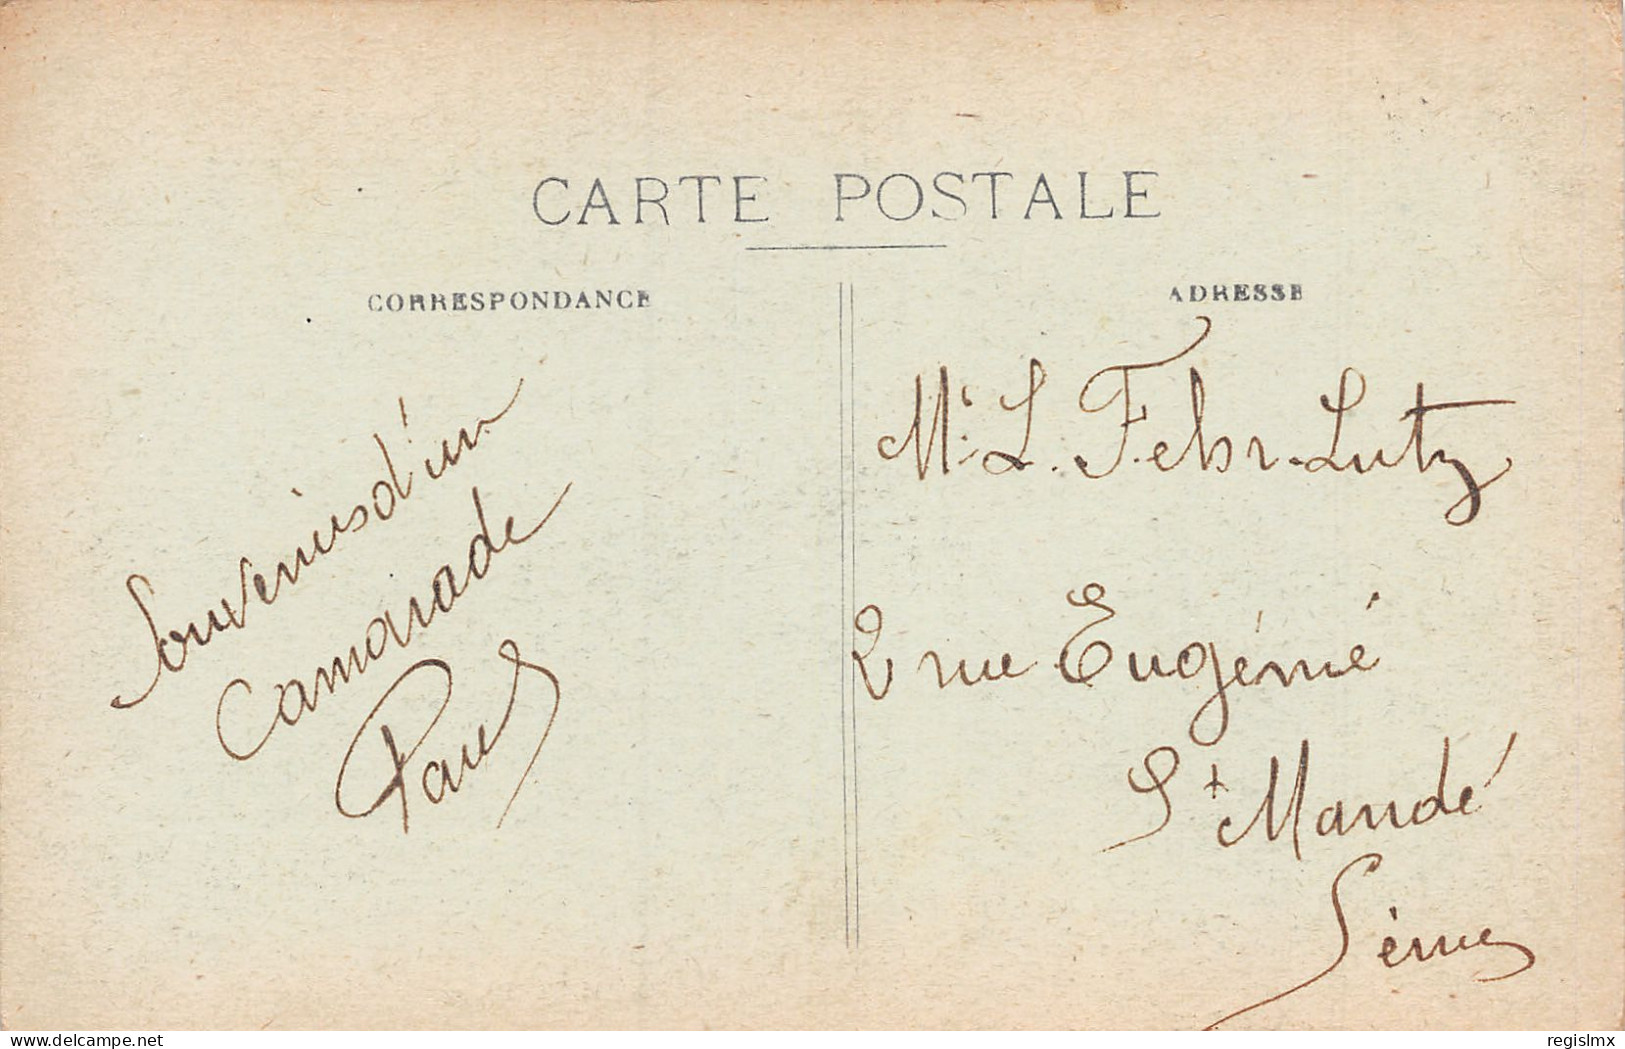 CARTE POSTALE
CORRESPONDANCE
Souvenirs d'un
Camarade
Paul
ADRESSE
Mr L. Fehr-Lutz
2 rue Eugénie
St Mandé
Seine
delcampe.net
regislmx